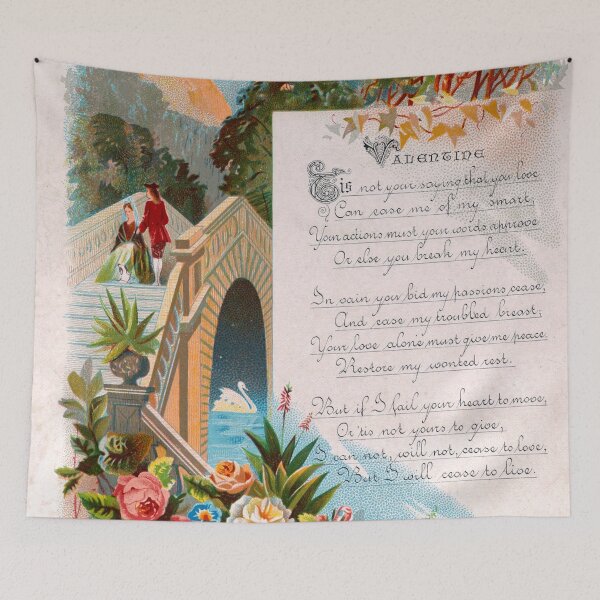 VALENTINE
Tis not your saying that you love
Can ease me of my smart;
Your actions must your words approve
Or else you break my heart.
In vain you bid my passions cease,
And ease my troubled breast;
Your love alone must give me peace.
Restore my wonted rest.
But if I fail your heart to move,
Or tis not yours to give,
I can not, will not, cease to love,
But I will cease to live.